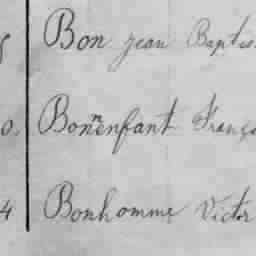 Bon jean Baptis
0. Bonnenfant Franço
4 Bonhomme Victor